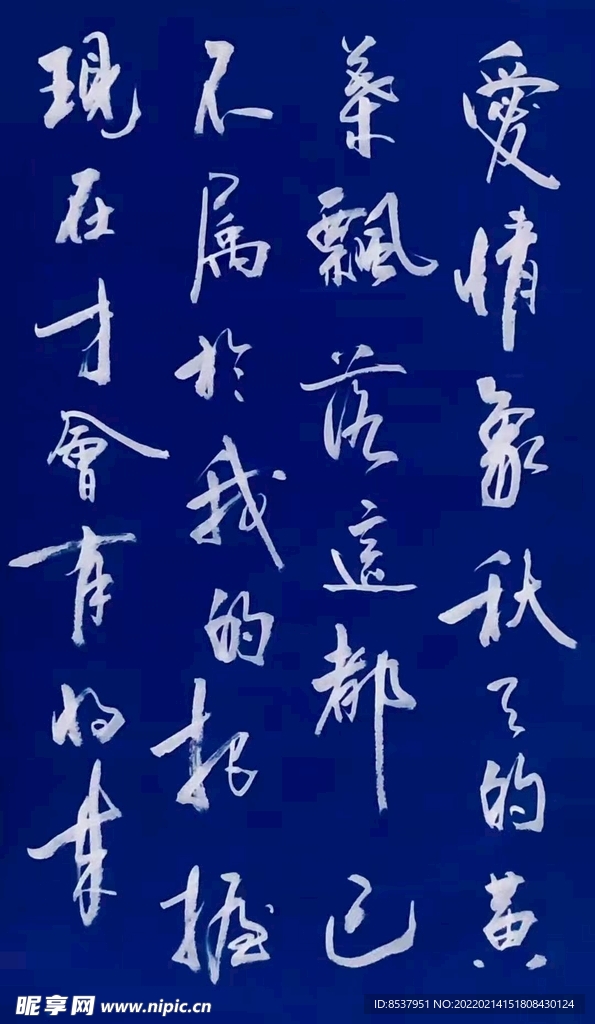 愛情象秋天的黄
葉飄落這都已
不属於我的把握
現在才會有将来
昵享网 www.nipic.cn
ID:8537951 NO:20220214151808430124